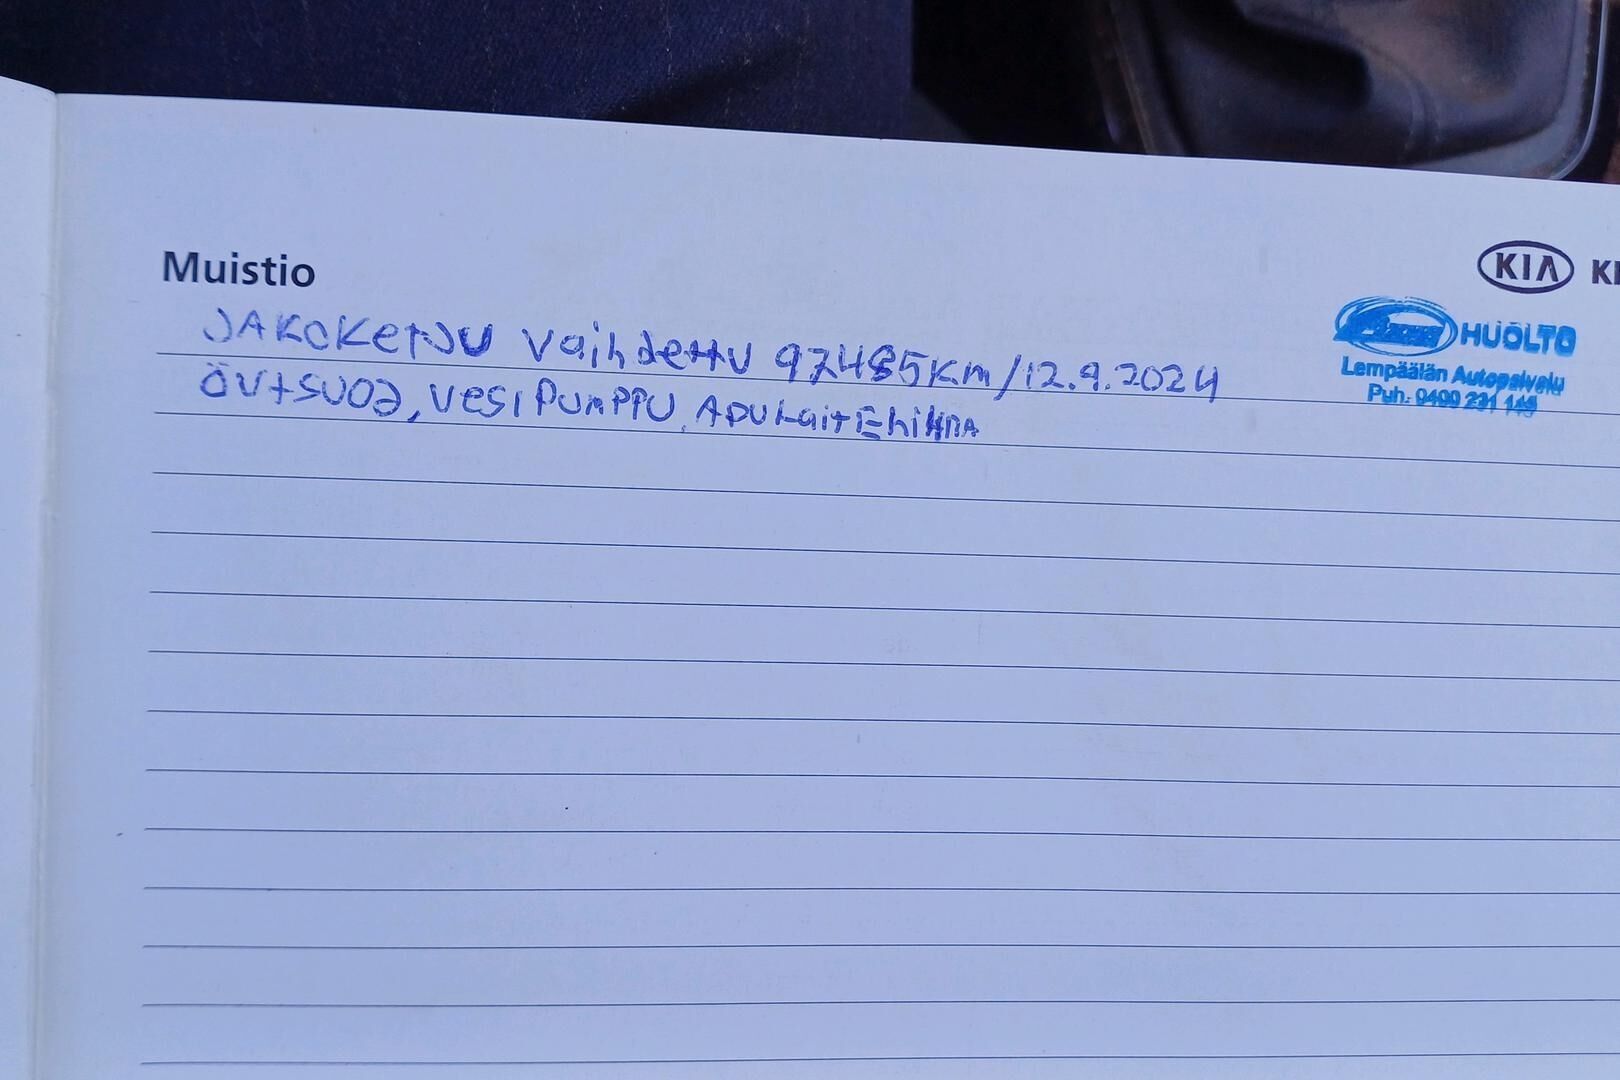 Muistio
KIA
JAKOKETJU vaihdettu 97485KM/12.9.2024
ÖVTSUOD, vesipumppu, APULAITEHIHNA
HUOLTO
Lempäälän Autopalvelu
Puh. 0400 231 149